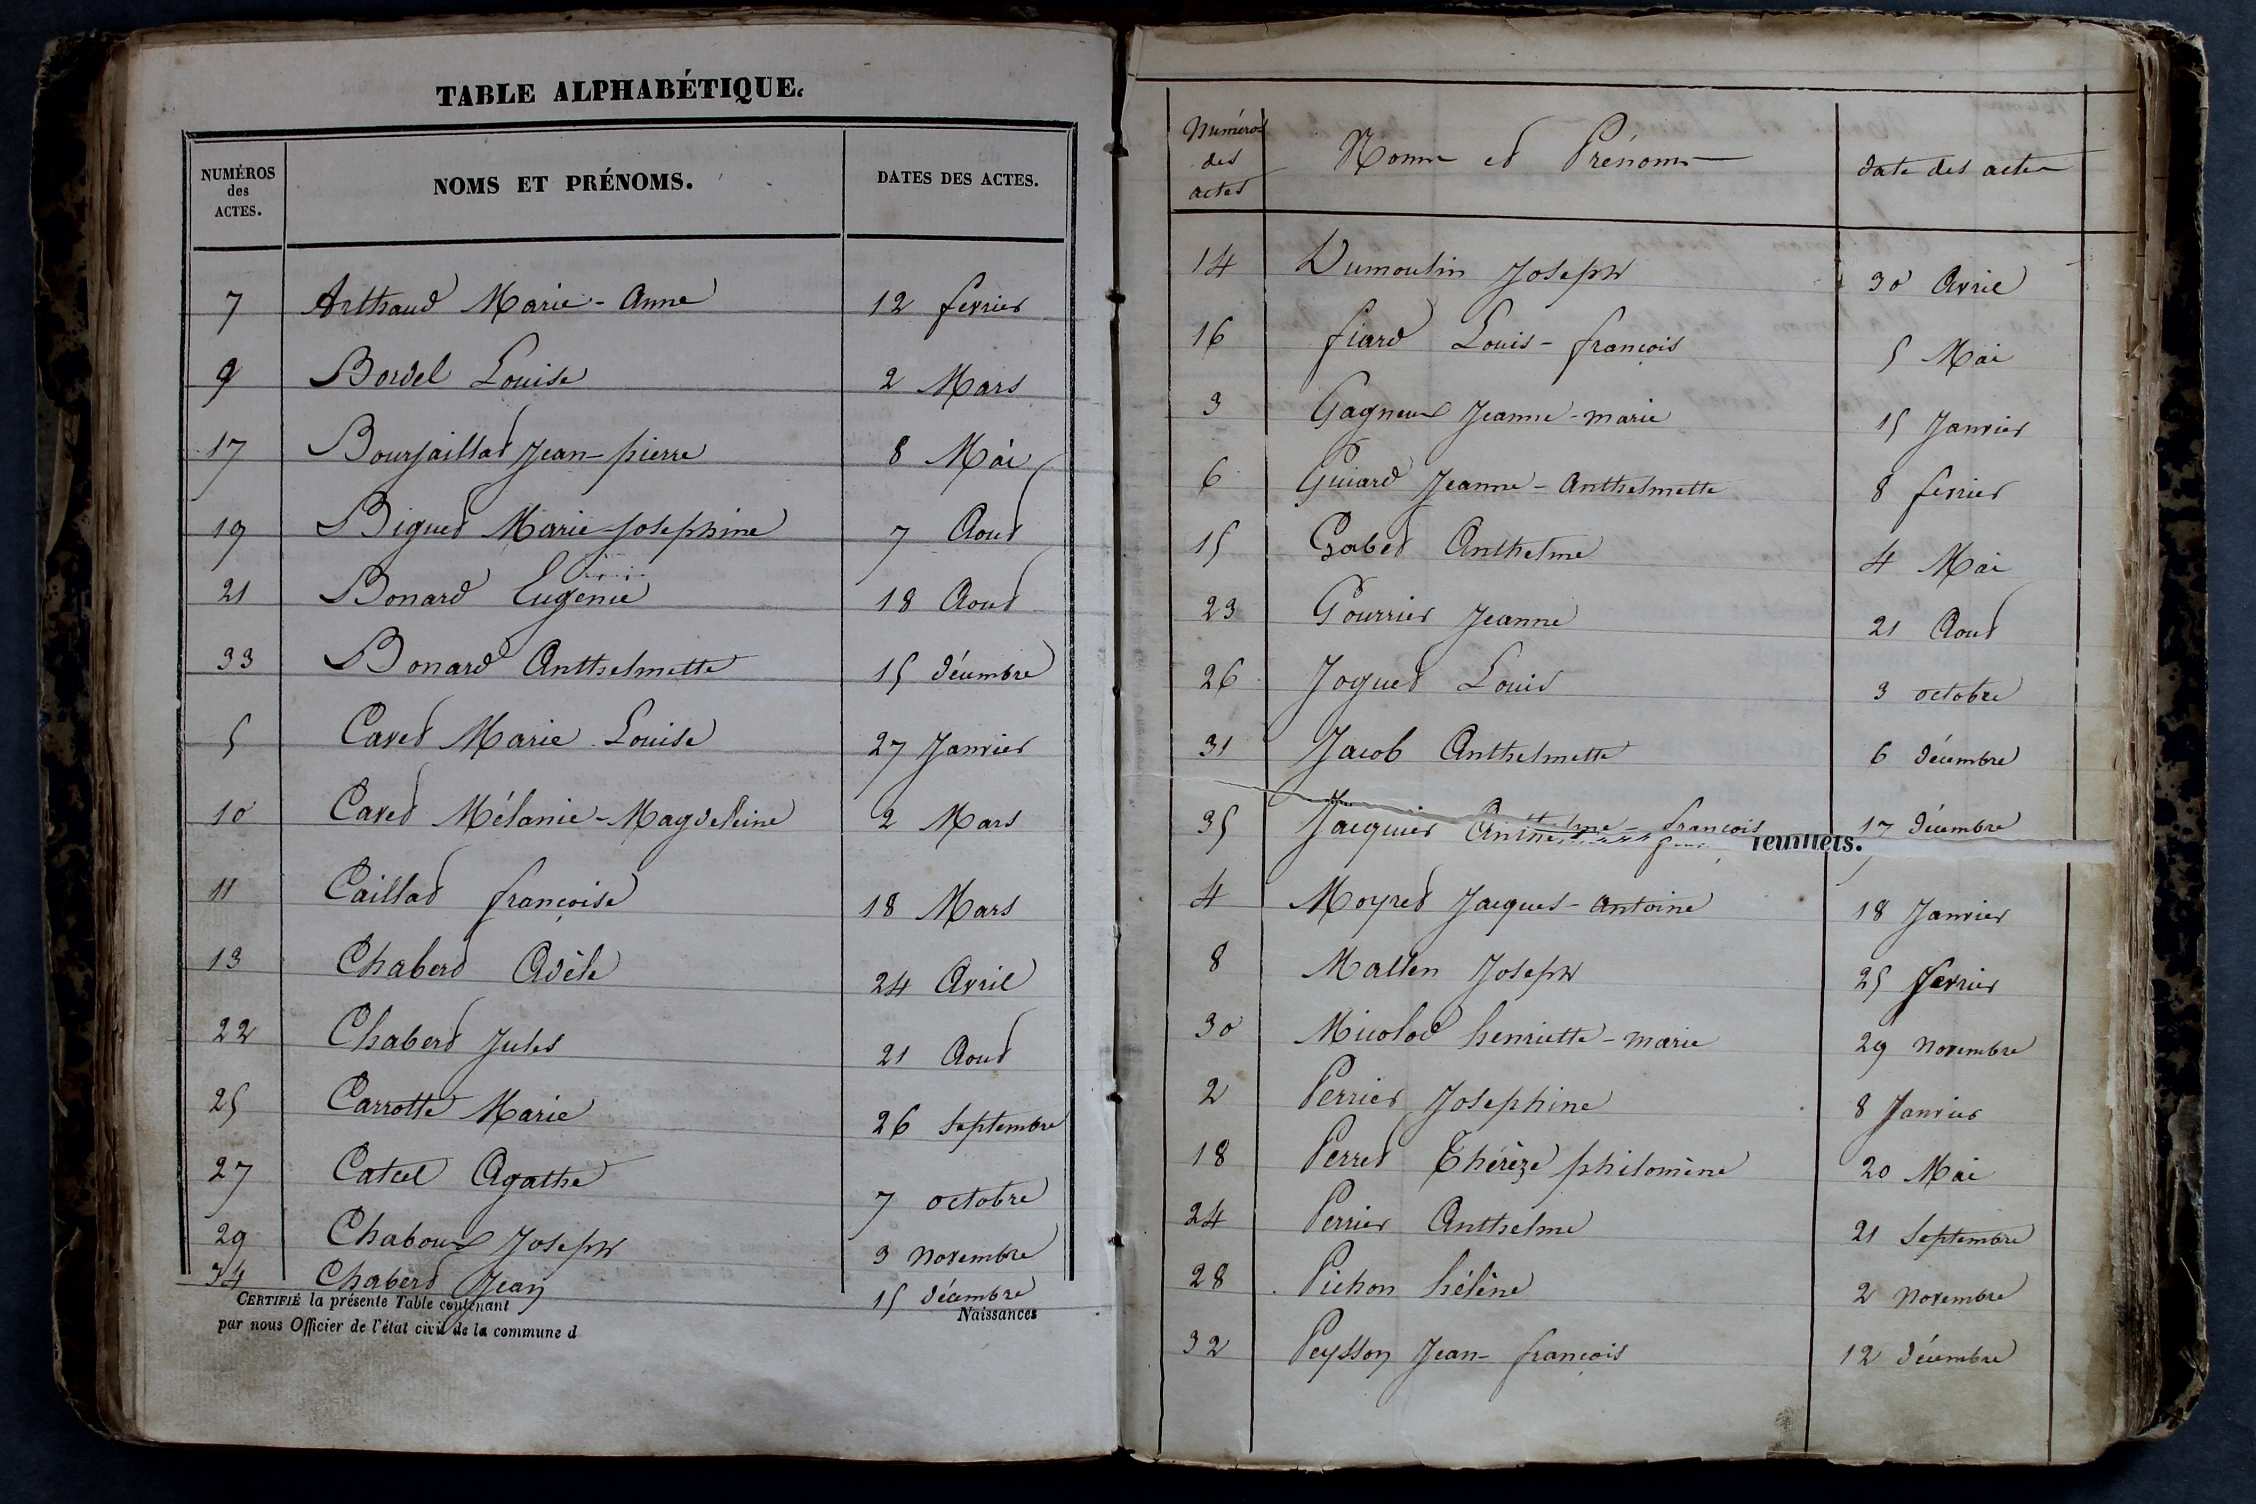 TABLE ALPHABÉTIQUE.
NUMÉROS des ACTES. NOMS ET PRÉNOMS. DATES DES ACTES.
7 Arthaud Marie-Anne 12 fevrier
9 Bordel Louise 2 Mars
17 Bourjaillat Jean-pierre 8 Mai
19 Biguet Marie-Josephine 7 Aout
21 Bonard Eugénie 18 Aout
33 Bonard Anthelmette 15 décembre
5 Cavet Marie Louise 27 Janvier
10 Cavet Mélanie-Magdeleine 2 Mars
11 Caillat françoise 18 Mars
13 Chabert Adèle 24 Avril
22 Chabert Jules 21 Aout
25 Carrotte Marie 26 Septembre
27 Catcel Agathe 7 octobre
29 Chaboux Joseph 3 Novembre
34 Chabert Jean 15 décembre
CERTIFIÉ la présente Table contenant Naissances
par nous Officier de l'état civil de la commune d
Numéros des actes Noms et Prénoms date des actes
14 Dumoulin Joseph 30 Avril
16 fiard Louis-françois 5 Mai
3 Gagneux Jeanne-marie 15 Janvier
6 Guiard Jeanne-Anthelmette 8 fevrier
15 Grabet Anthelme 4 Mai
23 Gourrier Jeanne 21 Aout
26 Joguet Louis 3 octobre
31 Jacob Anthelmette 6 décembre
35 Jacquier Anthelme-françois 17 décembre
feuillets.
4 Moyret Jacques-Antoine 18 Janvier
8 Mallen Joseph 25 fevrier
30 Micolod henriette-marie 29 Novembre
2 Perrier Josephine 8 Janvier
18 Perret Thérèze philomène 20 Mai
24 Perrier Anthelme 21 Septembre
28 Pichon hélène 2 Novembre
32 Peysson Jean-françois 12 décembre